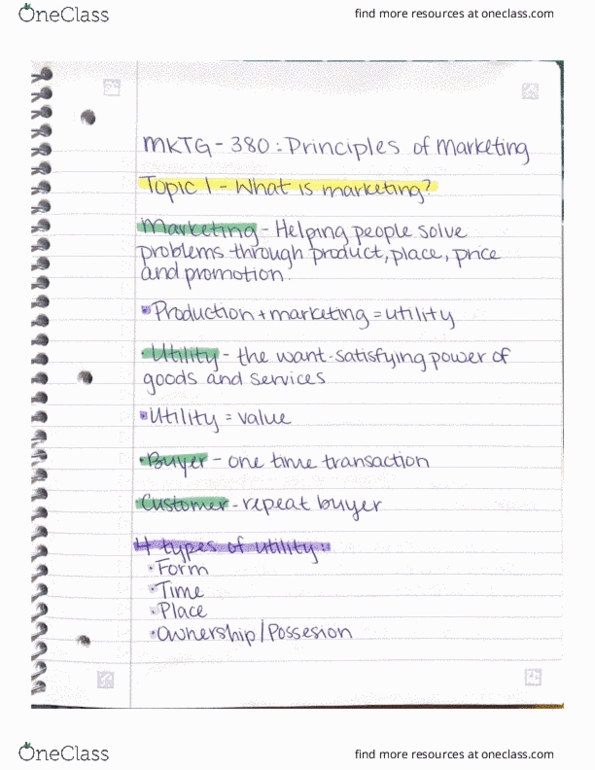 OneClass
find more resources at oneclass.com
MKTG-380: Principles of Marketing
Topic 1 - What is marketing?
Marketing - Helping people solve
problems through product, place, price
and promotion.
Production + marketing = utility
• Utility - the want-satisfying power of
goods and services
Utility = value
• Buyer - one time transaction
• Customer - repeat buyer
4 types of utility:
• Form
• Time
• Place
• Ownership/Possesion
OneClass
find more resources at oneclass.com